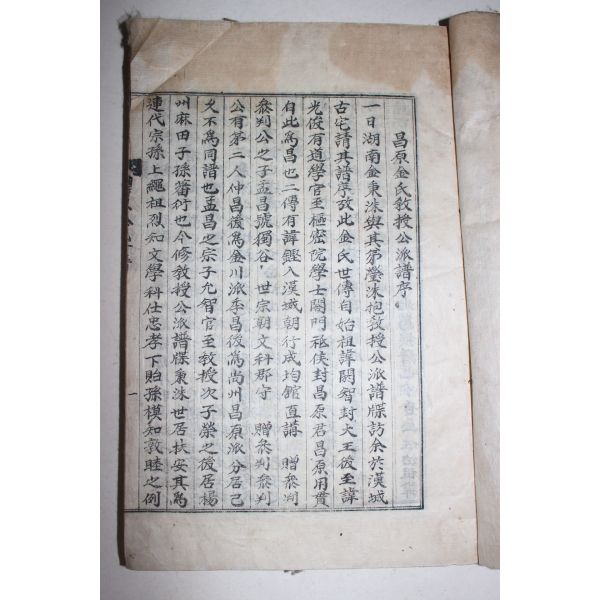 昌原金氏教授公派譜序
一日湖南金秉洙與其弟瑩洙抱教授公派譜牒訪余於漢城
古宅請其譜序故此金氏世傳自始祖諱閼智封大王後至諱
光俊有道學官至樞密院學士閤門祗侯封昌原君昌原用貫
自此爲昌也二傳有諱鏗入漢城朝行成均館直講 贈叅判
叅判公之子孟昌號獨谷 世宗朝文科郡守 贈叅判叅判
公有第二人仲昌後爲金川派季昌後爲尙州昌原派分居已
久不爲同譜也孟昌之宗子允智官至教授次子榮之後居楊
州麻田子孫蕃衍也今修教授公派譜牒秉洙世居扶安其爲
連代宗孫上繩祖烈知文學科仕忠孝下貽孫模知敦睦之例
一